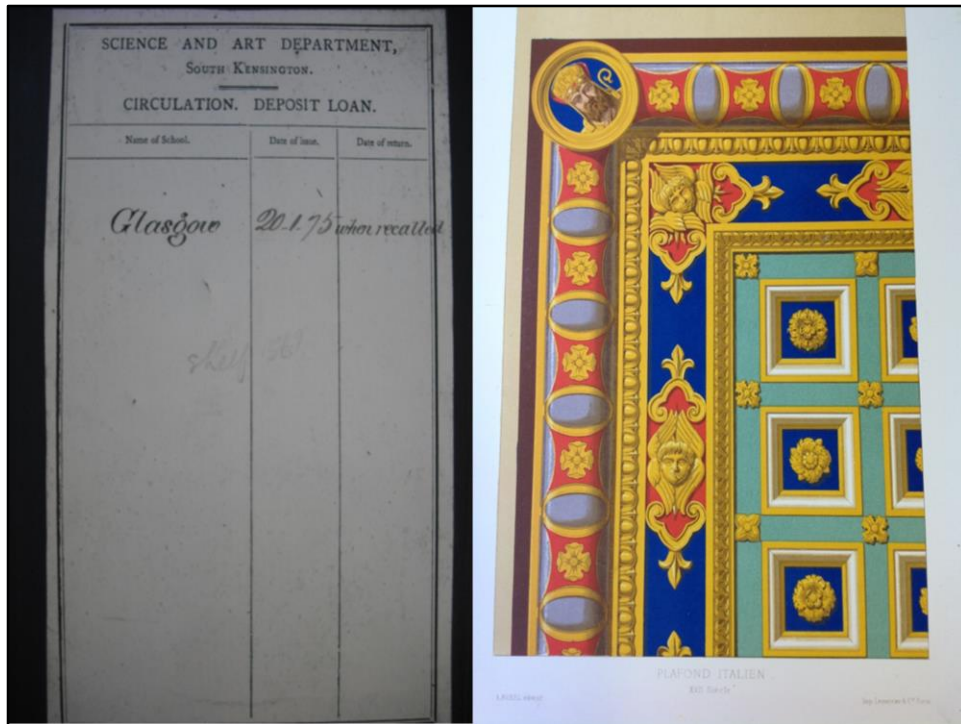 SCIENCE AND ART DEPARTMENT,
SOUTH KENSINGTON.
CIRCULATION. DEPOSIT LOAN.
Name of School. Date of issue. Date of return.
Glasgow 20.1.75 when recalled
shelf
PLAFOND ITALIEN